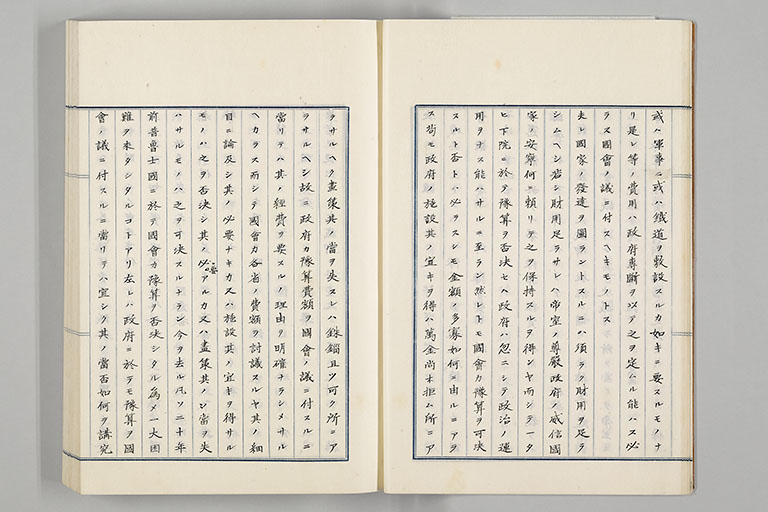 或ハ軍事ニ或ハ鉄道ヲ敷設スルカ如キニ要スルモノナ
リ是レ等ノ費用ハ政府専断ヲ以テ之ヲ定ムル能ハス必
ラス國會ノ議ニ付スヘキモノトス
夫レ國家ノ發達ヲ圖ラントスルニハ須ラク財用ヲ足ラ
シムヘシ若シ財用足ラサレハ帝室ノ尊厳政府ノ威信國
家ノ安寧何ニ頼リテ之ヲ保持スルヲ得ンヤ而シテ一タ
ヒ下院ニ於テ豫算ヲ否決セハ政府ハ忽ニシテ政治ノ運
用ヲナス能ハサルニ至ラン然レトモ國會カ豫算ヲ可決
スルト否トハ必ラスシモ金額ノ多寡如何ニ由ルニアラ
ス苟モ政府ノ施設其ノ宜キヲ得ハ萬金尚ホ拒ム所ニア
ラサルヘク畫策其ノ當ヲ失スレハ錙銖且ツ可ク所ニア
ラサルヘシ故ニ政府カ豫算費額ヲ國會ノ議ニ付スルニ
當リテハ其ノ經費ヲ要スルノ理由ヲ明確ナラシメサル
ヘカラス而シテ國會カ各省ノ費額ヲ討議スルヤ其ノ細
目ニ論及シ其ノ必要ナキカ又ハ施設其ノ宜キヲ得サル
モノハ之ヲ否決シ其ノ必要アルカ又ハ畫策其ノ當ヲ失
ハサルモノハ之ヲ可決スルナラン今ヲ去ル凡ソ二十年
前普魯士國ニ於テ國會カ豫算ヲ否決シタル為メ一大困
難ヲ来タシタルコトアリ左レハ政府ニ於テモ豫算ヲ國
會ノ議ニ付スルニ當リテハ宜シク其ノ當否如何ヲ講究